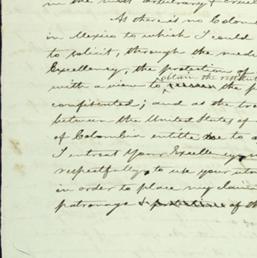 in the most arbitrary & cruel
As there is no Colom
in Mexico to which I could
to solicit, through the med
Excellency, the protection of
obtain the restit
with a view to, the p
confiscated; and as the tre
between the United States of
of Colombia entitle me to a
I entreat Your Excellency
respectfully to use your
in order to place my claim
patronage & protection of th